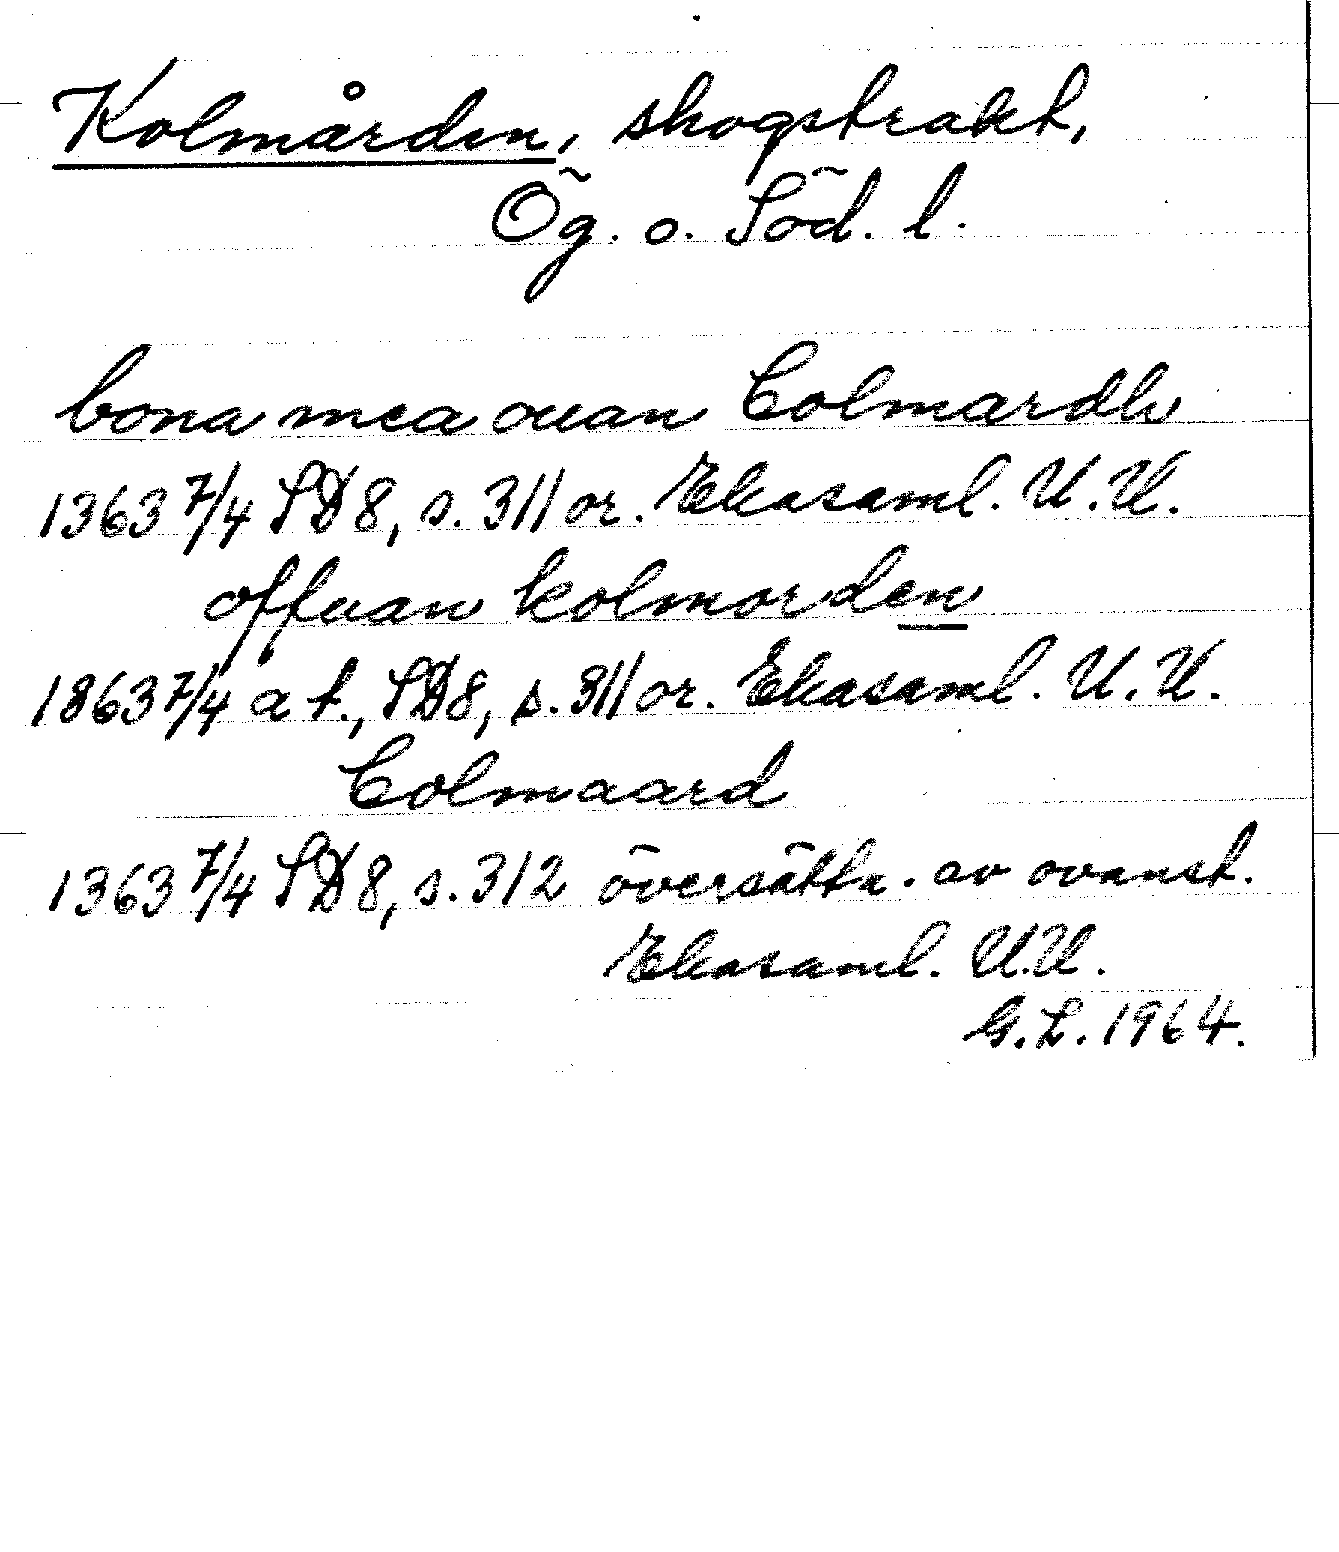 Kolmården, skogstrakt,
Ög. o. Söd. l.
bona mea ouan Colmardh
1363 7/4 SD 8, s. 311 or. Ekasaml. U.U.
offuan kolmorden
1363 7/4 a t., SD 8, s. 311 or. Ekasaml. U.U.
Colmaard
1363 7/4 SD 8, s. 312 översättn. av ovanst.
Ekasaml. U.U.
G.L. 1964.